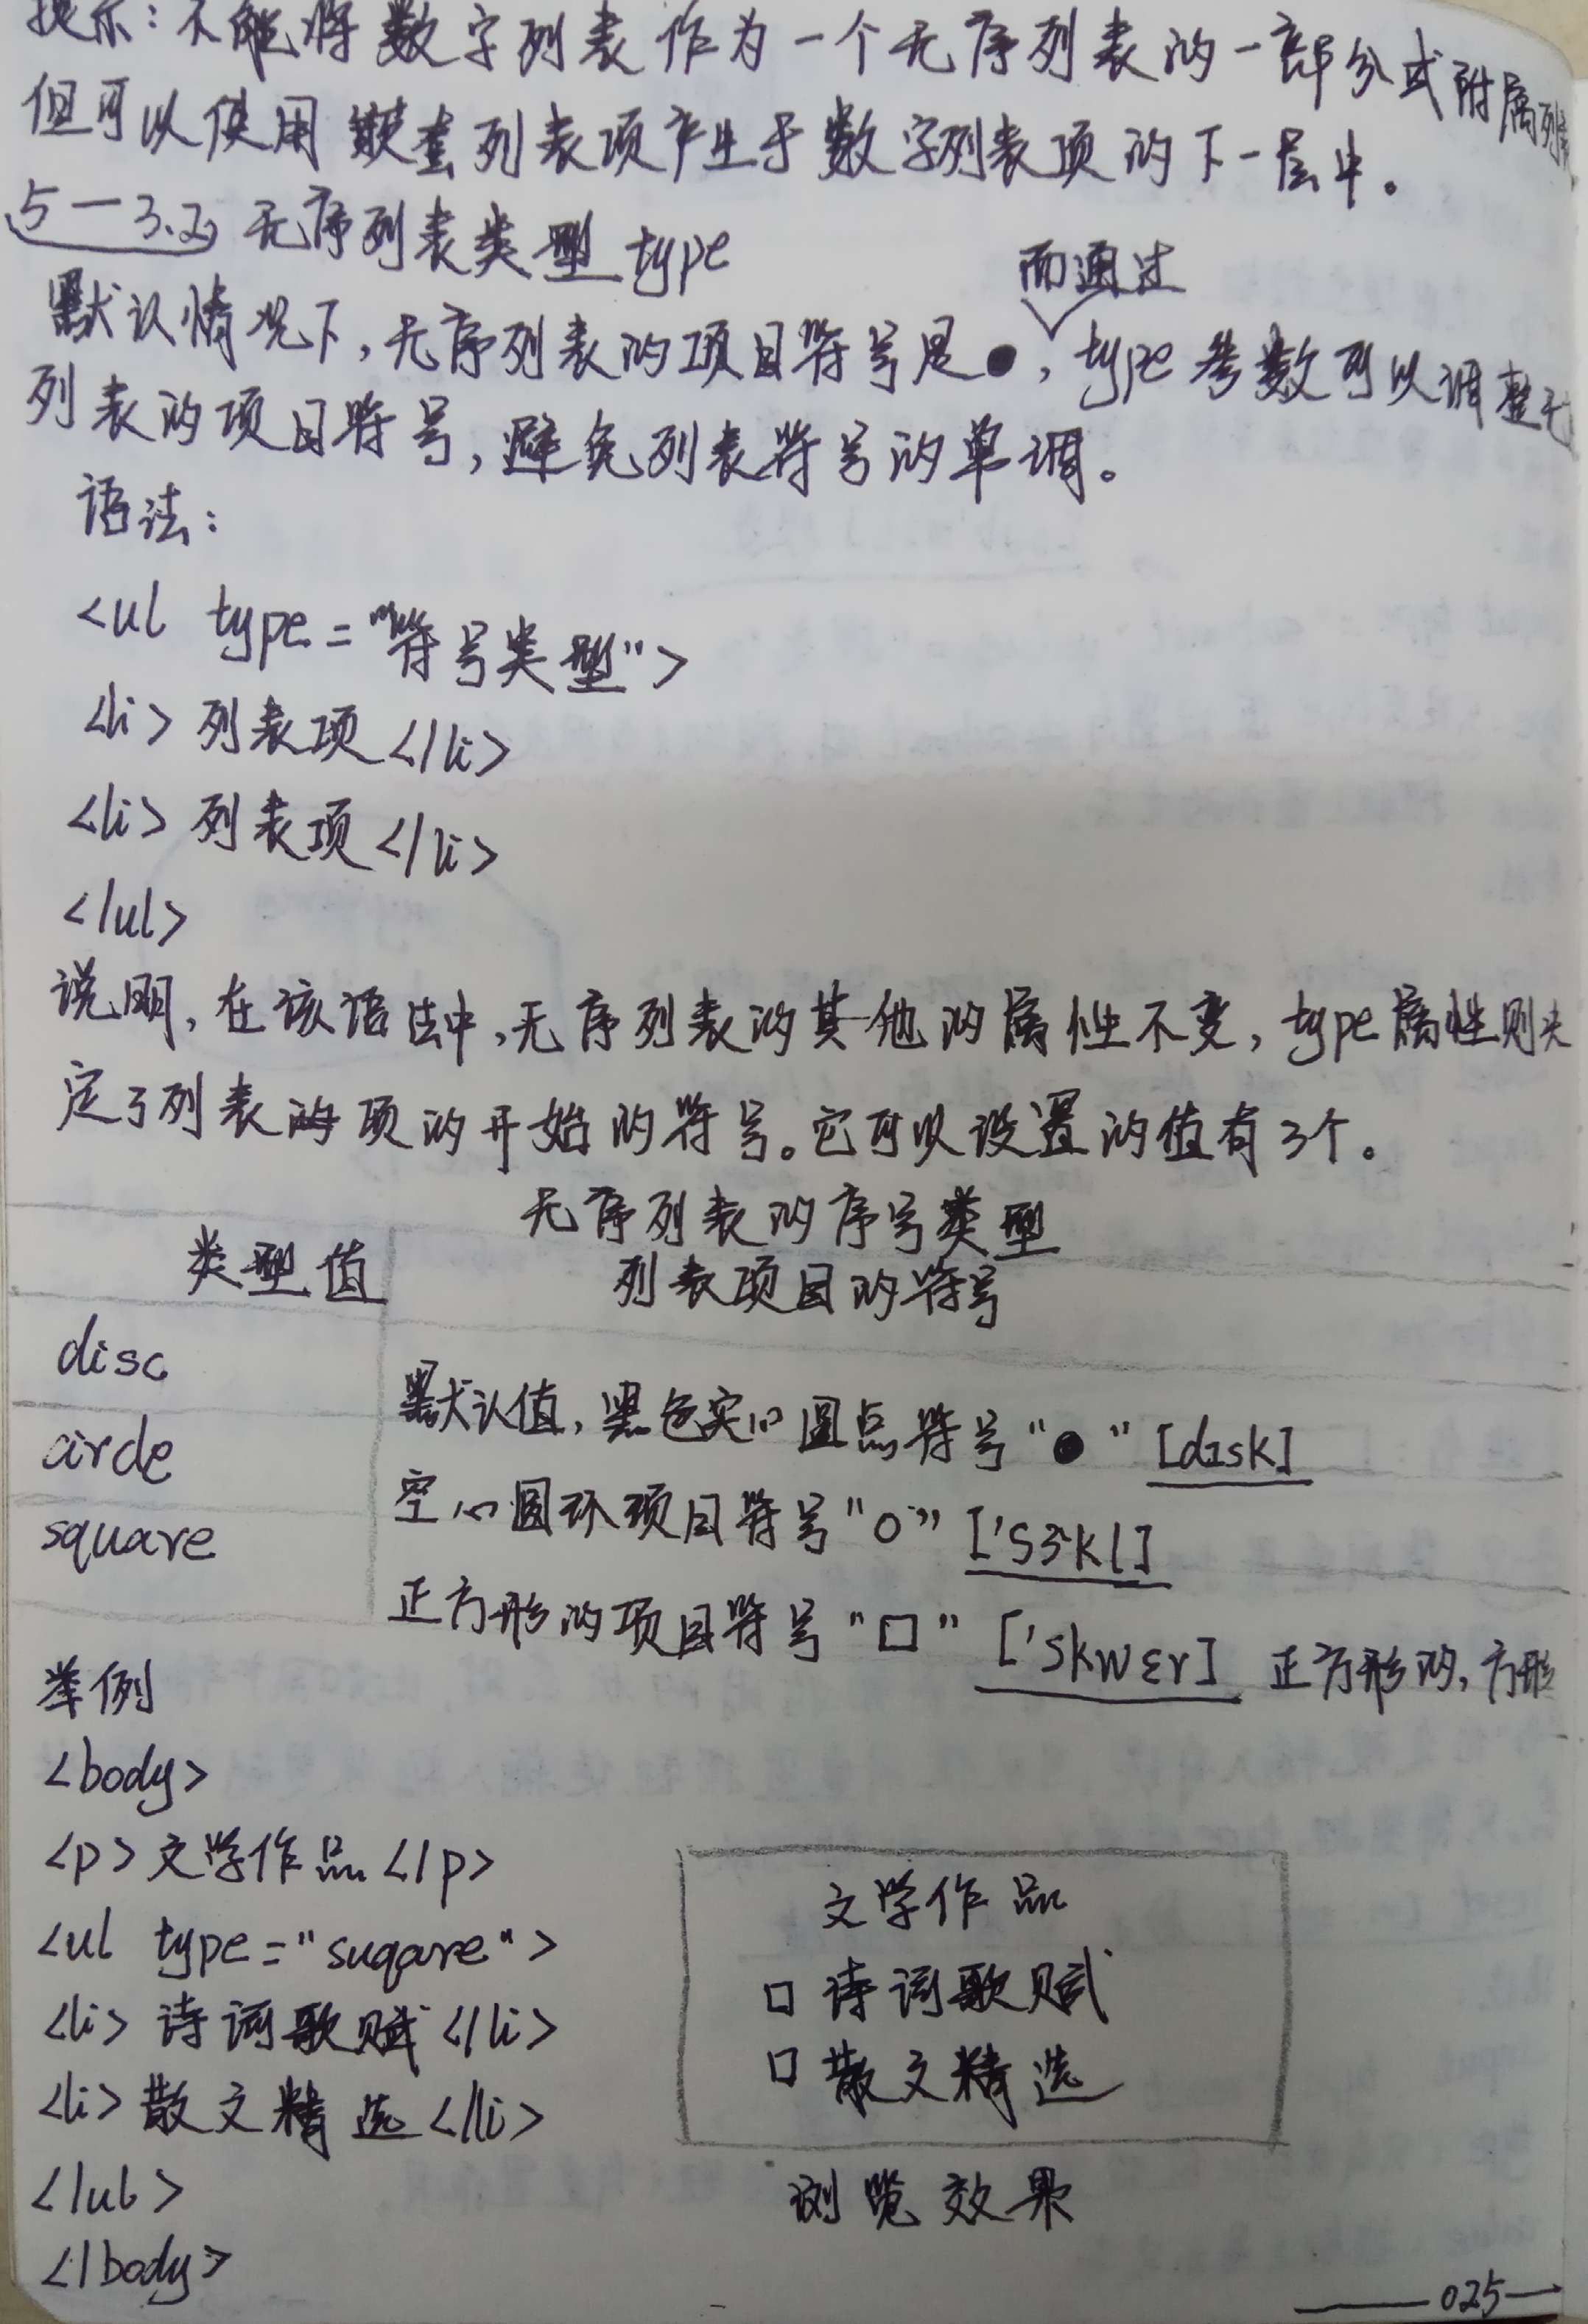 提示：不能将数字列表作为一个无序列表的一部分或附属列表,
但可以使用嵌套列表项产生于数字列表项的下一层中。
5－3.2 无序列表类型type
而通过
默认情况下,无序列表的项目符号是●,type参数可以调整无
列表的项目符号,避免列表符号的单调。
语法:
<ul type="符号类型">
<li>列表项</li>
<li>列表项</li>
</ul>
说明,在该语法中,无序列表的其他的属性不变,type属性则决
定了列表的项的开始的符号。它可以设置的值有3个。
无序列表的序号类型
类型值 列表项目的符号
disc 默认值,黑色实心圆点符号"●" [dɪsk]
circle 空心圆环项目符号"○" ['sɝkl]
square 正方形的项目符号"□" ['skwɛr] 正方形的,方形
举例
<body>
<p>文学作品</p>
<ul type="suqare">
<li>诗词歌赋</li>
<li>散文精选</li>
</ul>
</body>
文学作品
□ 诗词歌赋
□ 散文精选
浏览效果
025